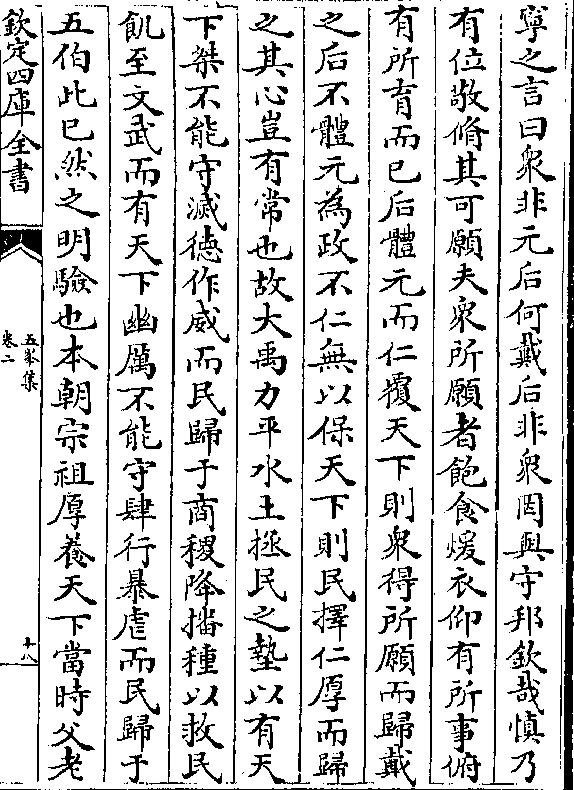 寧之言曰衆非元后何戴后非衆罔與守邦欽哉慎乃
有位敬脩其可願夫衆所願者飽食煖衣仰有所事俯
有所育而已后體元而仁覆天下則衆得所願而歸戴
之后不體元為政不仁無以保天下則民擇仁厚而歸
之其心豈有常也故大禹力平水土拯民之墊以有天
下桀不能守滅德作威而民歸于商稷降播種以救民
飢至文武而有天下幽厲不能守肆行暴虐而民歸于
五伯此已然之明驗也本朝宗祖厚養天下當時父老
欽定四庫全書
五峯集
卷二
十八